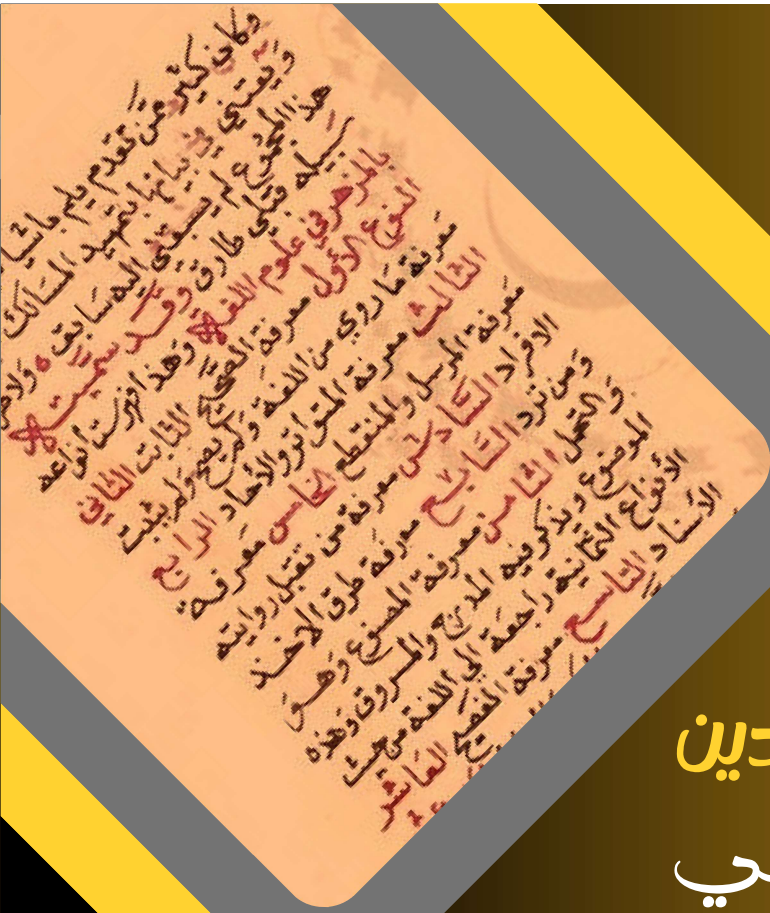 وكان كثير ممن تقدم يلم باشيا
ويعتني في بيانها بتمهيد المسالك
هذا المجموع لم يسبقني اليه سابق ولا
سبيله قبلي طارق وقد سميته
بالمزهر في علوم اللغة وهذا فهرست انواعه
النوع الأول معرفة الصحيح الثابت الثاني
معرفة ما روي من اللغة ولم يصح ولم يثبت
الثالث معرفة المتواتر والآحاد الرابع
معرفة المرسل والمنقطع الخامس معرفة
الافراد السادس معرفة من تقبل روايته
ومن ترد السابع معرفة طرق الاخذ
والتحمل الثامن معرفة المصنوع وهو
الموضوع ويذكر فيه المدرج والمسروق وهذه
الأنواع الثمانية راجعة الى اللغة من حيث
الأسناد التاسع معرفة الفصيح العاشر
دين
ي